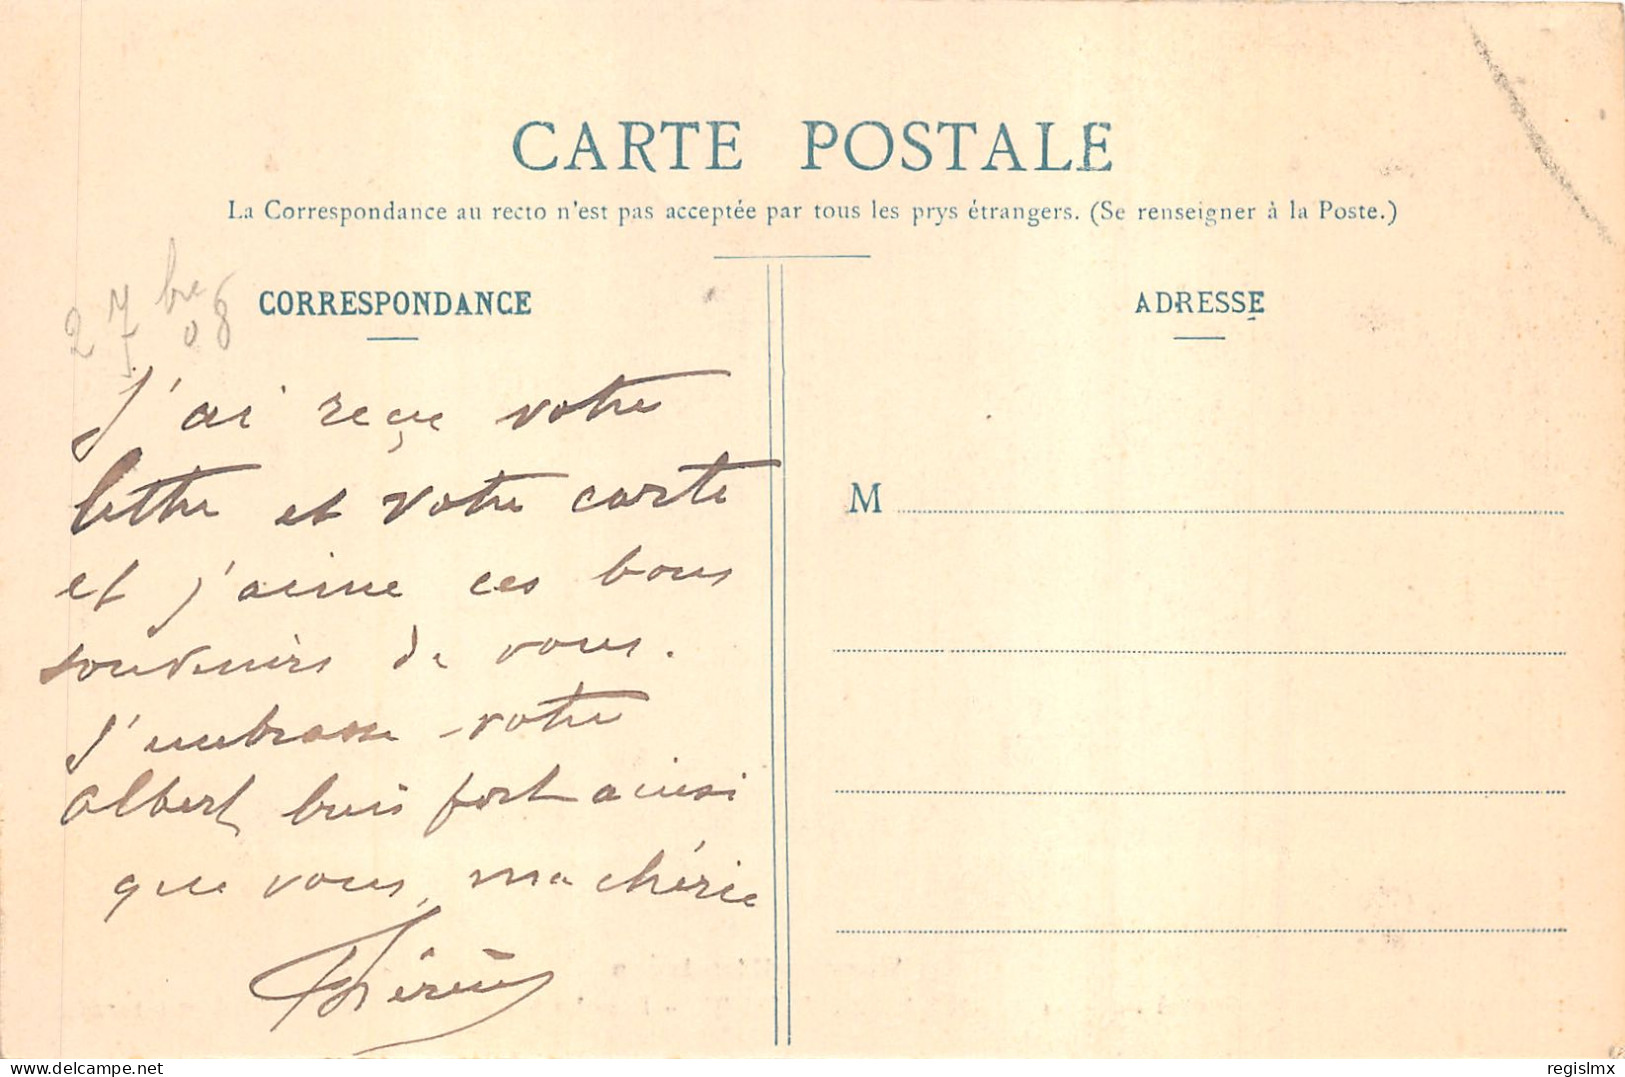 CARTE POSTALE
La Correspondance au recto n'est pas acceptée par tous les prys étrangers. (Se renseigner à la Poste.)
CORRESPONDANCE
2 7bre 08
J'ai reçu votre
lettre et votre carte
et j'aime ces bons
souvenirs de vous.
J'embrasse votre
Albert bien fort ainsi
que vous, ma chérie
ADRESSE
M
delcampe.net
regislmx